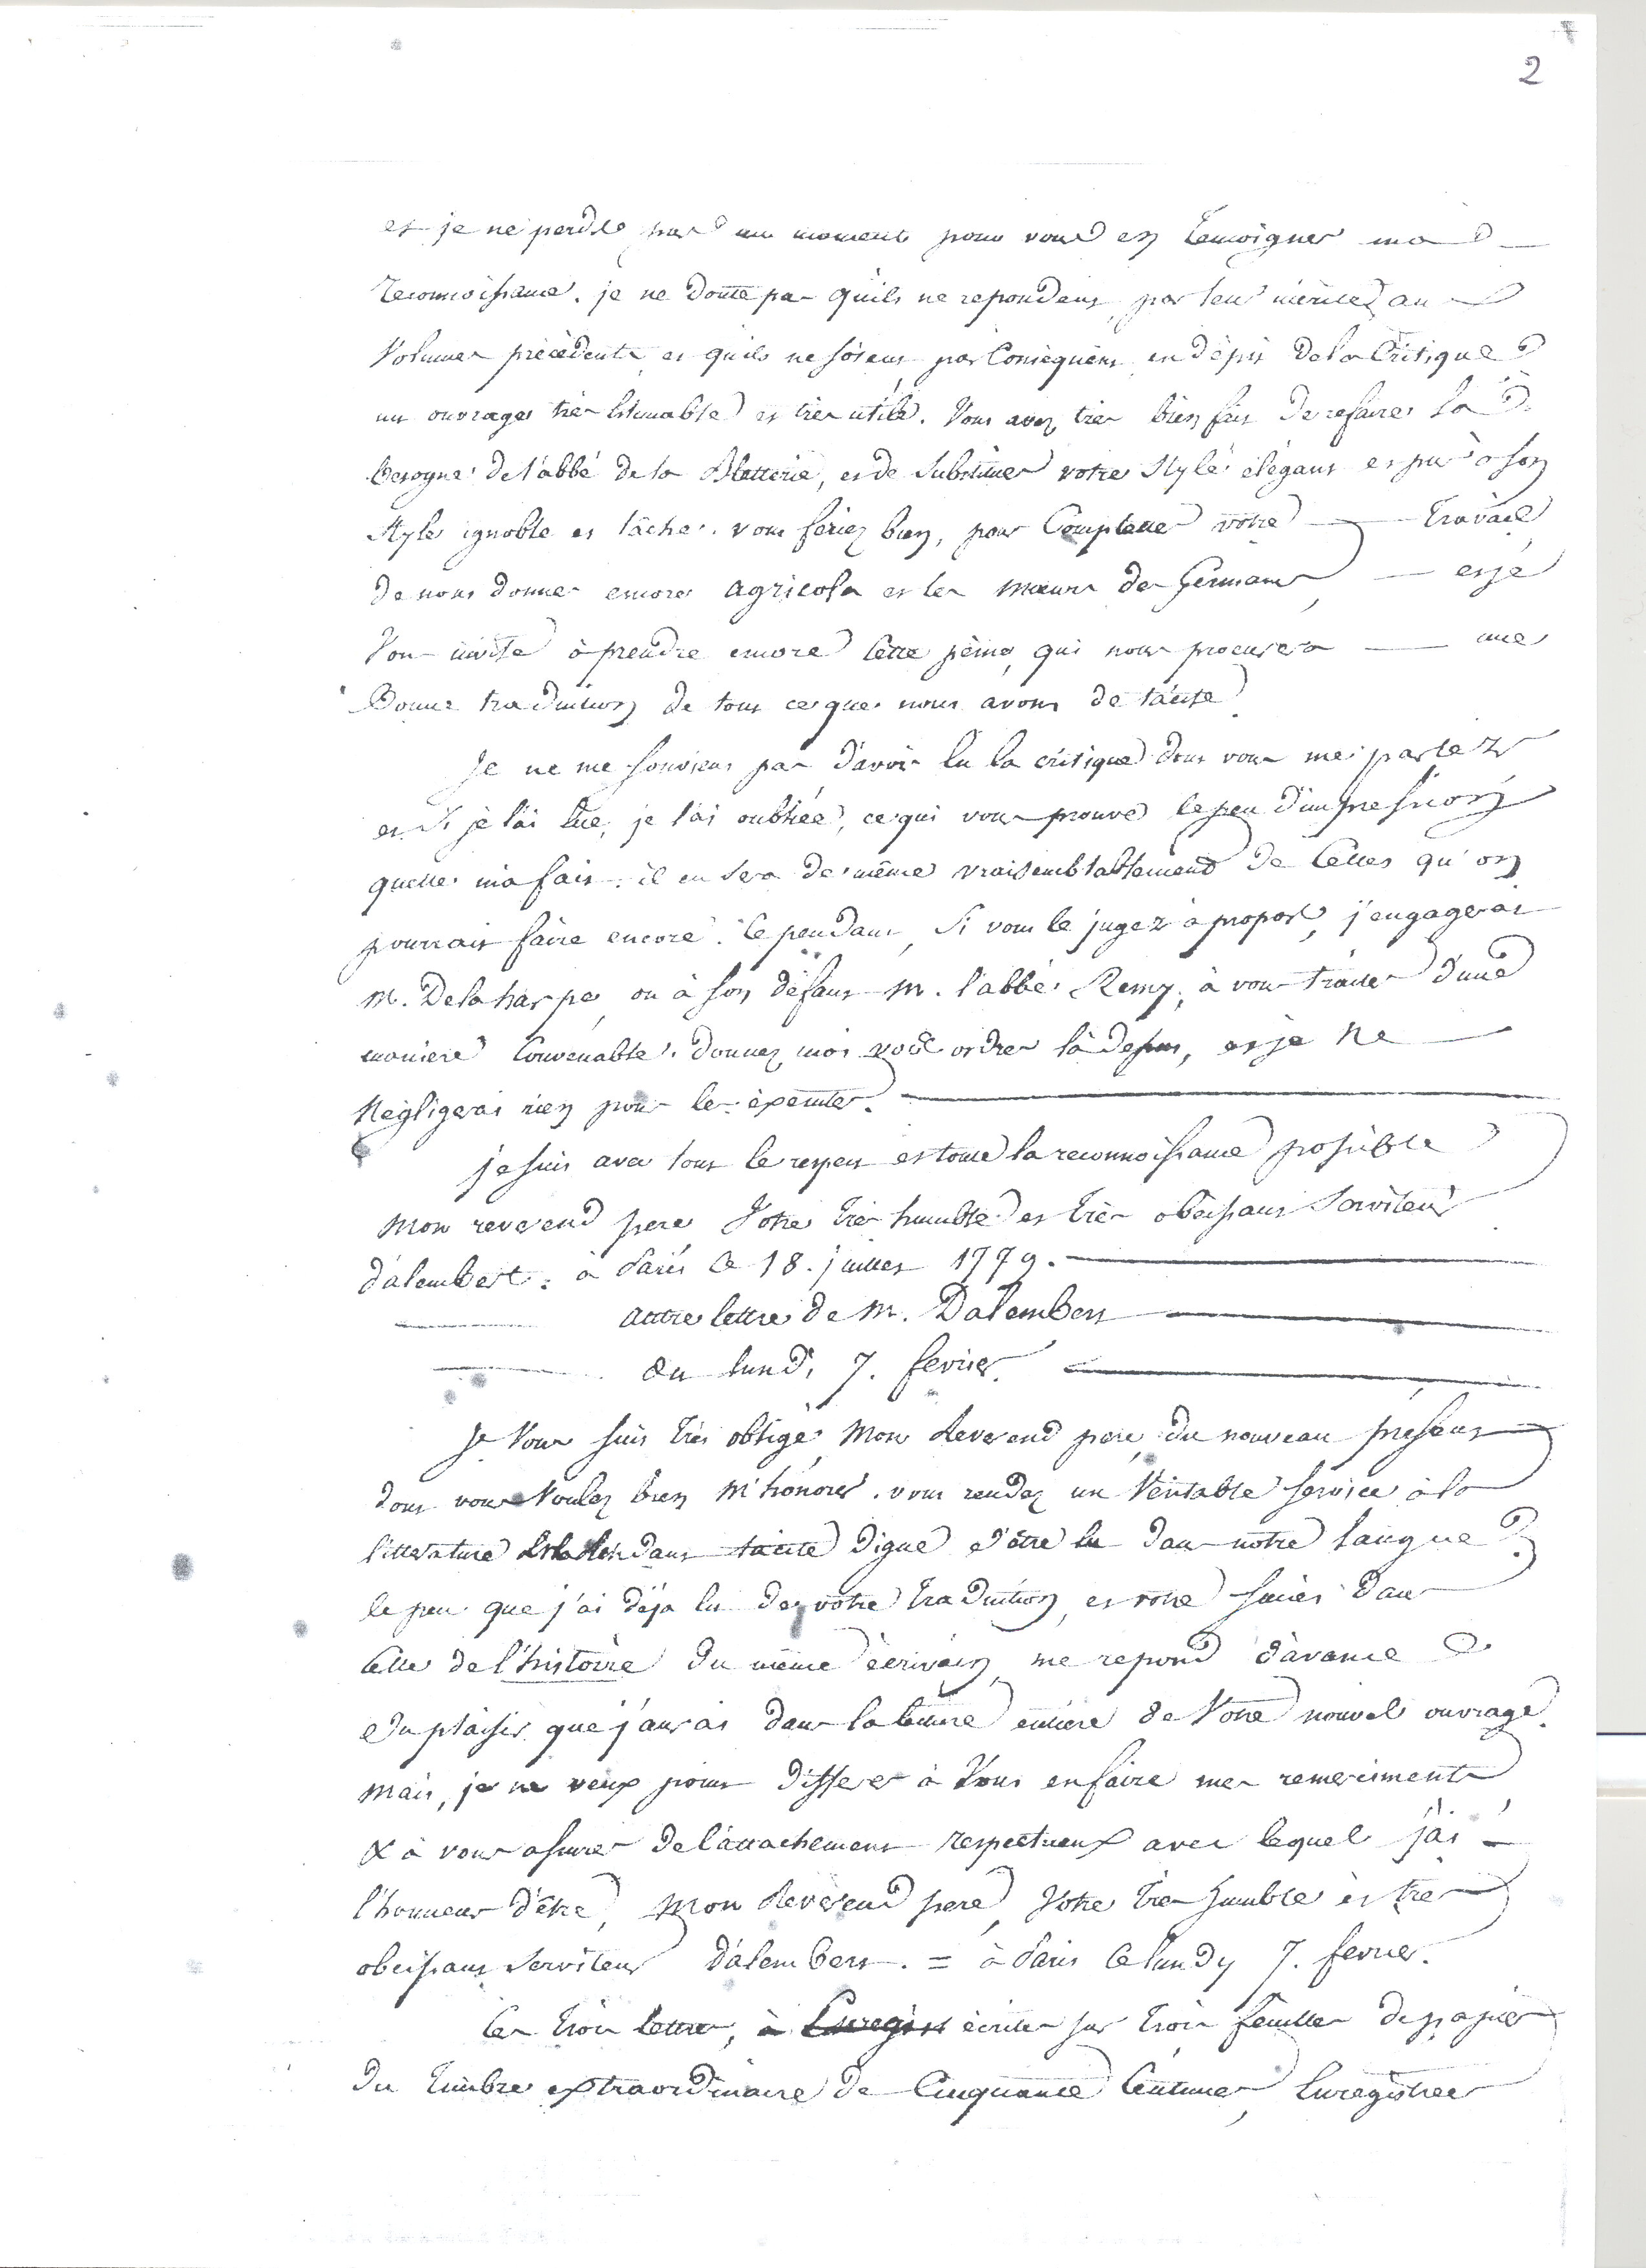 2
et je ne perds pas un moment pour vous en temoigner ma
reconnoissance. je ne doute pas quils ne repondent, par leur mérite, au
volumes précédents, et quils ne soient par consequent, en dépit de la Critique
un ouvrage très estimable et très utile. Vous avez très bien fait de refaire la
besogne de l'abbé de la Bletterie, et de substituer votre style élégant et pur à son
style ignoble et lâche. vous feriez bien, pour Completter votre travail
de nous donner encore agricola et les mœurs des Germains, et je
Vous invite à prendre encore cette peine, qui nous procurera une
Bonne traduction de tout ce que nous avons de tacite
Je ne me souviens pas d'avoir lu la critique dont vous me parlez
et si je l'ai lue, je l'ai oubliée, ce qui vous prouve le peu d'impression
quelle m'a fait. il en sera de même vraisemblablement de Celles qu'on
pourrait faire encore. Cependant, si vous le jugez à propos, j'engagerai
M. Delaharpe, ou à son défaut M. l'abbé Remy, à vous traiter d'une
maniere Convenable. donnez moi vos ordres là dessus, et je ne
Negligerai rien pour les éxécuter.
je suis avec tout le respect et toute la reconnoissance possible
Mon reverend pere Votre très humble et très obéissant Serviteur
d'alembert. à Paris Ce 18. juillet 1779.
autre lettre de M. Dalembert
du lundi 7. fevrier.
Je Vous suis très obligé, Mon Reverend pere, du nouveau présent
dont vous voulez bien m'honorer. vous rendez un Véritable service à la
litterature dans tacite digne d'être lu dans notre langue
le peu que j'ai déja lu de votre traduction, et votre succès dans
Celle de l'histoire du même écrivain, me repond d'avance
du plaisir que j'aurai dans la lecture entiere de Votre nouvel ouvrage.
Mais, je ne veux point differer à Vous en faire mes remerciments
& à vous assurer de l'attachement respectueux avec lequel j'ai
l'honneur d'être, Mon Reverend pere, Votre très humble et très
obeissant Serviteur d'alembert. = à Paris Ce lundy 7. fevrier.
Ces trois lettres, à Enregist écrites sur trois feuilles de papier
du timbre extraordinaire de Cinquante Centimes, Enregistrées